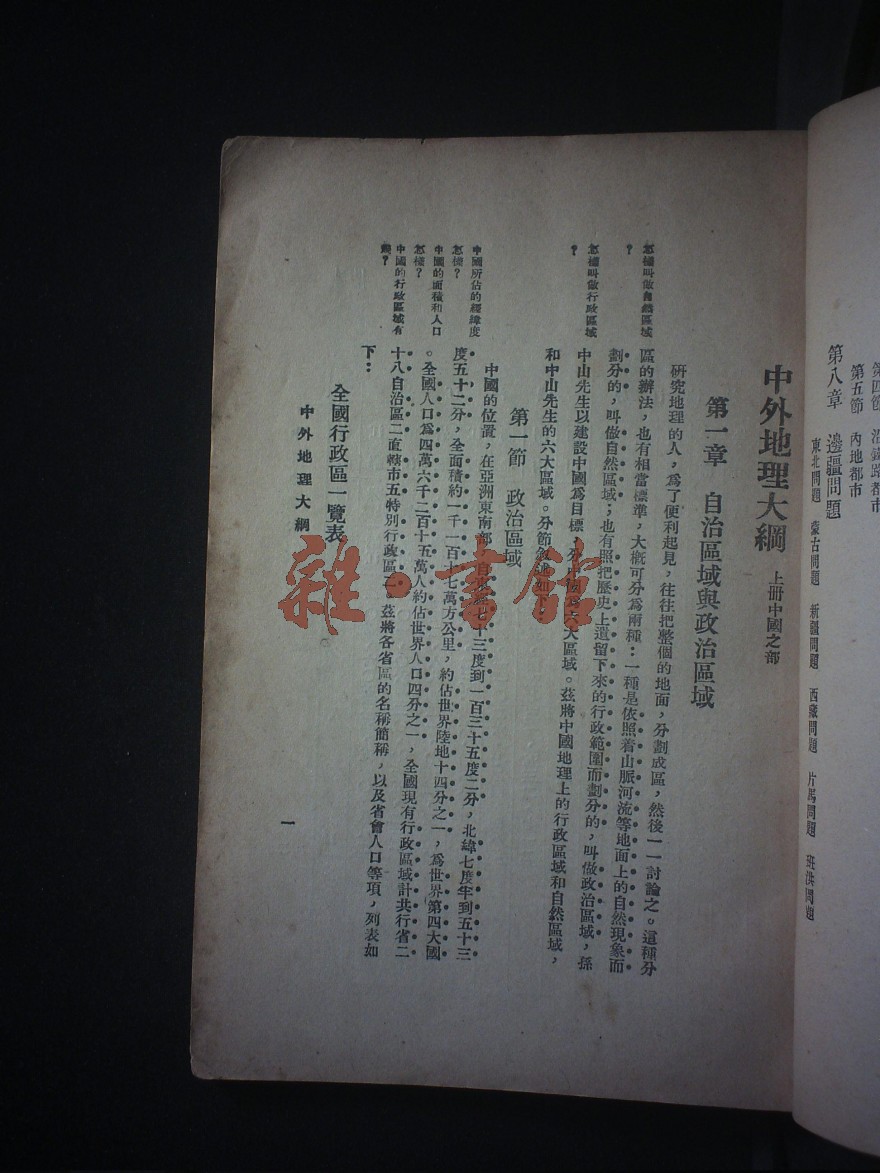 第四節 沿鐵路都市
第五節 內地都市
第八章 邊疆問題
東北問題 蒙古問題 新疆問題 西藏問題 片馬問題 班洪問題
中外地理大綱 上册中國之部
第一章 自治區域與政治區域
研究地理的人，為了便利起見，往往把整個的地面，分劃成區，然後一一討論之。這種分
區的辦法，也有相當標準，大概可分為兩種：一種是依照着山脈河流等地面上的自然現象而
劃分的，叫做自然區域；也有照把歷史上遺留下來的行政範圍而劃分的，叫做政治區域，孫
中山先生以建設中國為目標，分中國為六大區域。茲將中國地理上的行政區域和自然區域，
和中山先生的六大區域。分節敘述如
怎樣叫做自然區域
？
怎樣叫做行政區域
？
第一節 政治區域
中國的位置，在亞洲東南部，自東經七十三度到一百三十五度二分，北緯七度半到五十三
度五十二分，全面積約一千一百十七萬方公里，約佔世界陸地十四分之一，為世界第四大國
。全國人口為四萬六千二百十五萬人約佔世界人口四分之一，全國現有行政區域計共行省二
十八自治區二直轄市五特別行政區二，茲將各省區的名稱簡稱，以及省會人口等項，列表如
下：
中國所佔的經緯度
怎樣？
中國的面積和人口
怎樣？
中國的行政區域有
幾？
全國行政區一覽表
中外地理大綱
一
雜·書館